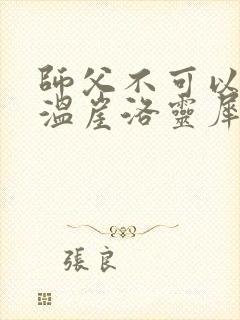 師父不可以
溫崖洛靈犀
張良